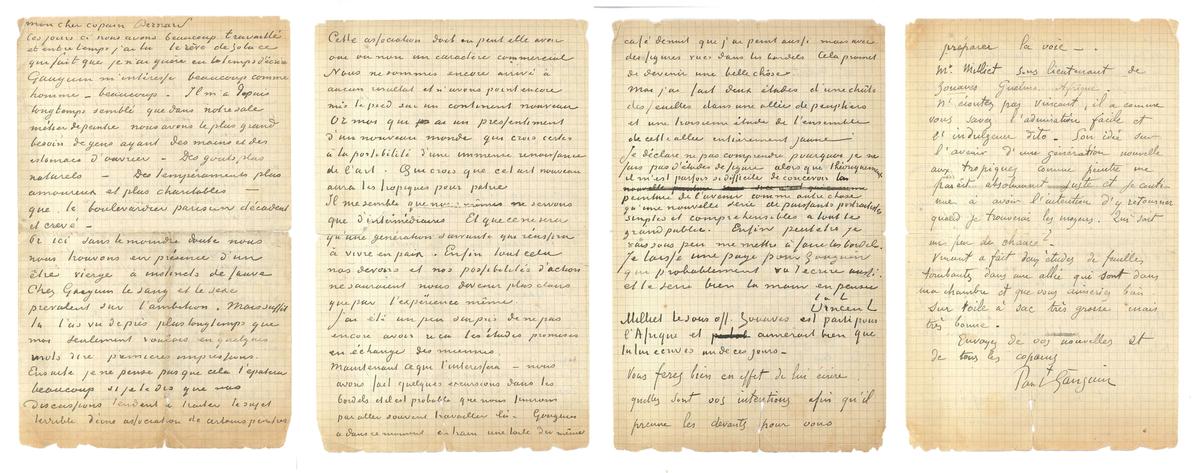 mon cher copain Bernard
Ces jours ci nous avons beaucoup travaillé
et entretemps j'ai lu le rêve de Zola ce
qui fait que je n'ai guère eu le temps d'écrire
Gauguin m'intéresse beaucoup comme
homme – beaucoup. Il m'a depuis
longtemps semblé que dans notre sale
métier de peintre nous avons le plus grand
besoin de gens ayant des mains et des
estomacs d'ouvrier – Des goûts plus
naturels – Des tempéraments plus
amoureux et plus charitables –
que le boulevardier parisien décadent
et crevé –
Or ici sans le moindre doute nous
nous trouvons en présence d'un
être vierge à instincts de sauvage
Chez Gauguin le sang et le sexe
prévalent sur l'ambition. Mais suffit
tu l'as vu de près plus longtemps que
moi seulement voulais en quelques
mots dire premières impressions.
Ensuite je ne pense pas que cela t'épatera
beaucoup si je te dis que nos
Discussions tendent à traiter le sujet
terrible d'une association de certains peintres
Cette association doit ou peut elle avoir
oui ou non un caractère commercial
Nous ne sommes encore arrivé à
aucun résultat et n'avons point encore
mis le pied sur un continent nouveau
Or moi qui ai un pressentiment
d'un nouveau monde qui crois certes
à la possibilité d'une immense renaissance
de l'art. Qui crois que cet art nouveau
aura les tropiques pour patrie
Il me semble que nous-mêmes ne servons
que d'intermédiaires Et que ce ne sera
qu'une génération suivante qui réussira
à vivre en paix. Enfin tout cela
nos devoirs et nos possibilités d'action
ne sauraient nous devenir plus clairs
que par l'expérience même.
j'ai été un peu surpris de ne pas
encore avoir reçu les études promises
en échange des miennes.
Maintenant ce qui t'intéressera – nous
avons fait quelques excursions dans les
bordels et il est probable que nous finirons
par aller souvent travailler là. Gauguin
a dans ce moment en train une toile du même
café de nuit que j'ai peint aussi mais avec
des figures vues dans les bordels Cela promet
de devenir une belle chose.
Moi j'ai fait deux études d'une chute
des feuilles dans une allée de peupliers
et une troisième étude de l'ensemble
de cette allée entièrement jaune
Je déclare ne pas comprendre pourquoi je ne
fais pas d'études de figure alors que théoriquement
il m'est parfois si difficile de concevoir la
peinture de l'avenir comme autre chose
qu'une nouvelle série de puissants portraitistes
simples et compréhensibles à tout le
grand public. Enfin peut être je
vais sous peu me mettre à faire les bordels.
Je laisse une page pour Gauguin
qui probablement va t'écrire aussi.
et te serre bien la main en pensée
t. à t.
Vincent
Milliet le sous off. Zouaves est parti pour
l'Afrique et aimerait bien que
tu lui écrives un de ces jours –
Vous ferez bien en effet de lui écrire
quelles sont vos intentions afin qu'il
prenne les devants pour vous
préparer la voie –.
Mr Milliet sous lieutenant de
Zouaves Guelma. Afrique.
N'écoutez pas Vincent, il a comme
vous savez l'admiration facile et
l'indulgence dito. Son idée sur
l'avenir d'une génération nouvelle
aux tropiques comme peintre me
paraît absolument juste et je conti
nue à avoir l'intention d'y retourner
quand je trouverai les moyens. Qui sait
un peu de chance?
Vincent a fait deux études de feuilles
tombantes dans une allée qui sont dans
ma chambre et que vous aimeriez bien
sur toile à sac très grosse mais
très bonne.
Envoyez de vos nouvelles et
de tous les copains
Paul Gauguin